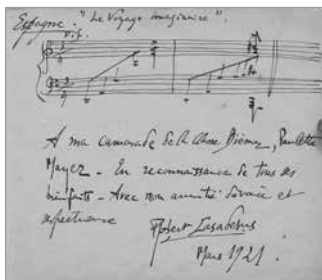 Espagne. "Le Voyage imaginaire".
Vif.
A ma camarade de la classe Diémer, Paulette
Mayer - En reconnaissance de tous ses
bienfaits - Avec mon amitié dévouée et
respectueuse
Robert Casadesus
Mars 1921